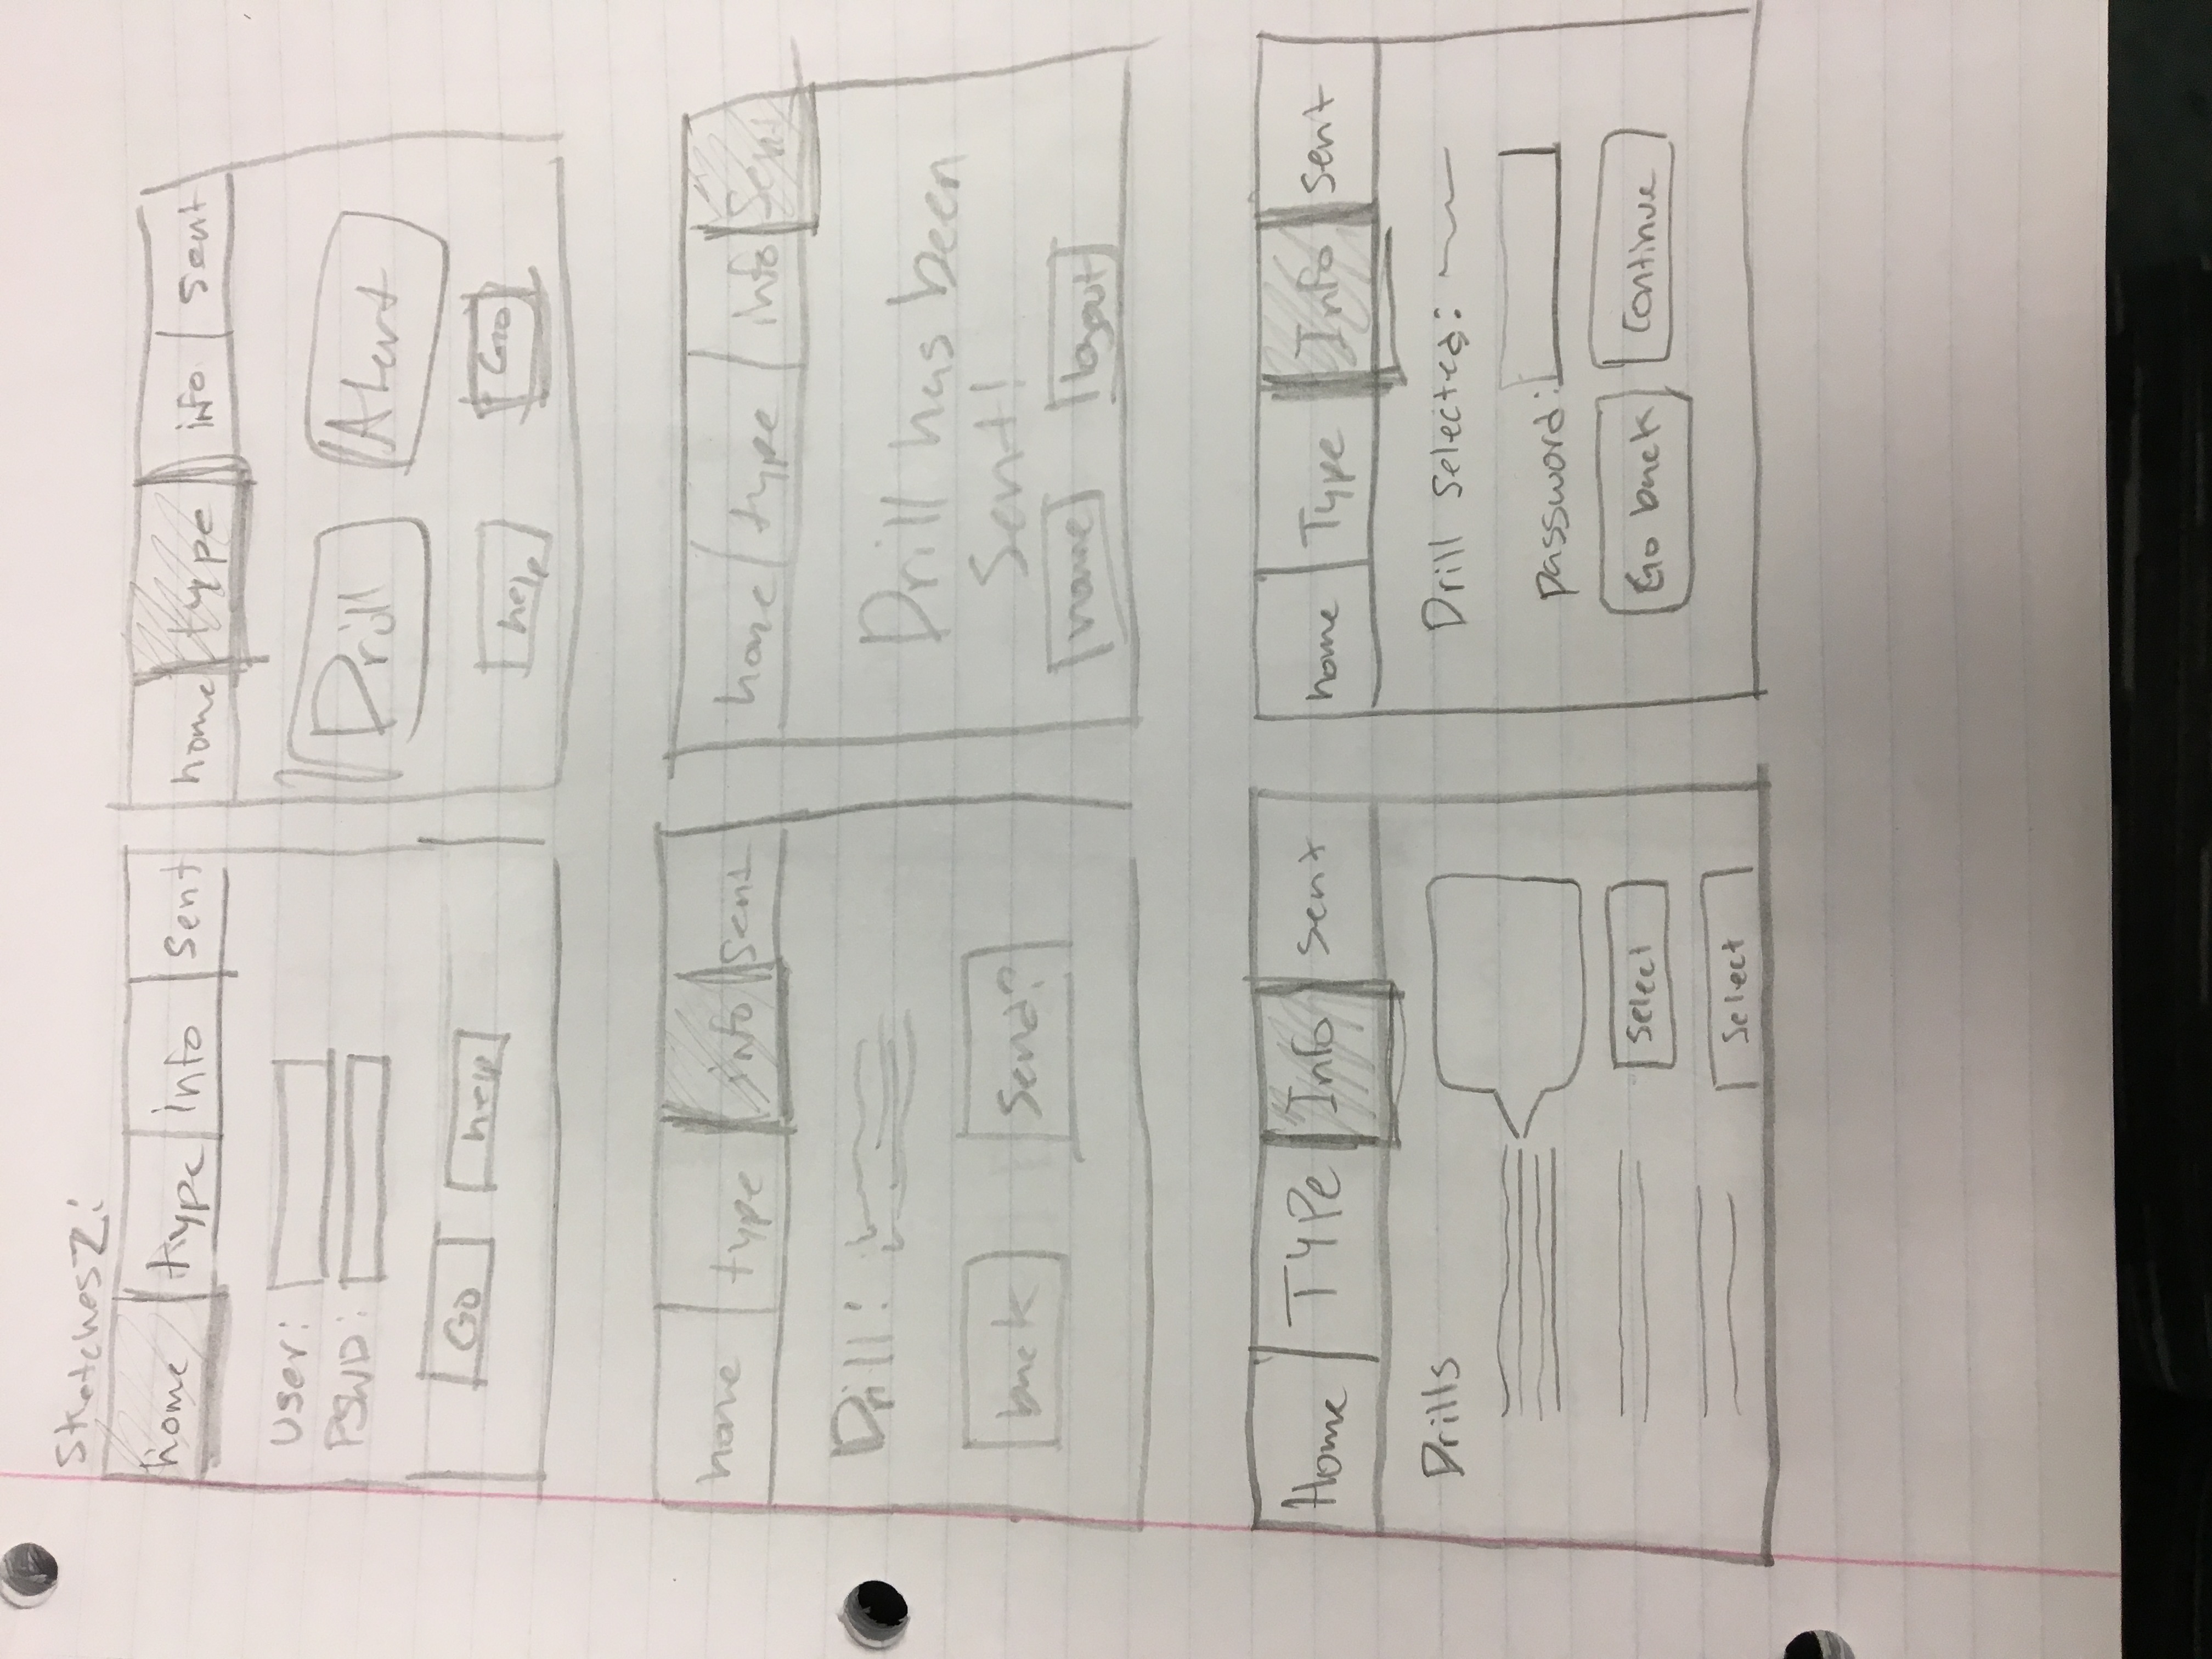 Sketches 2:
home type info sent
User:
PSWD:
Go help
home type info sent
Drill Alert
help Go
home type info sent
Drill:
back Send?
home type info Sent
Drill has been
Sent!
home logout
Home TYPe Info sent
Drills
Select
Select
home Type Info Sent
Drill Selected:
password:
Go back Continue